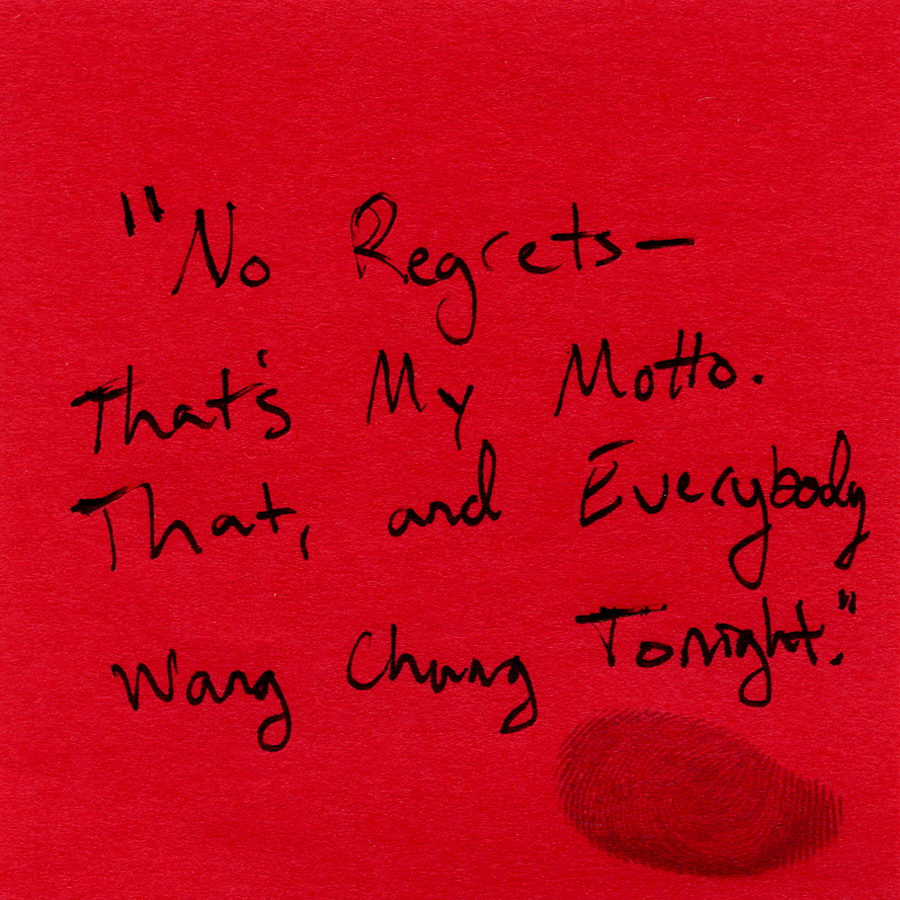 "No Regrets—
That's My Motto.
That, and Everybody
Wang Chung Tonight."